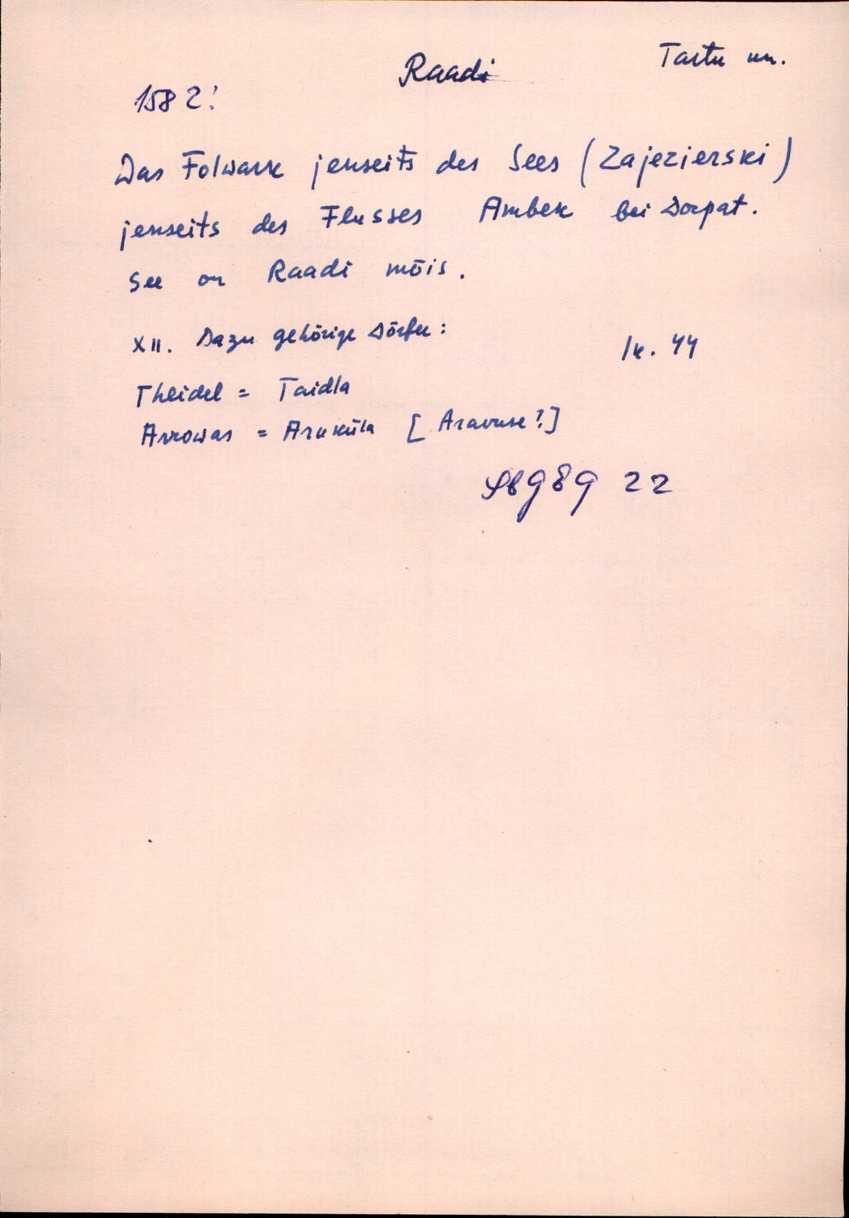 Raadi
Tartu un.
1582!
Das Folwark jenseits des Sees (Zajezierski)
jenseits des Flusses Ambek bei Dorpat.
See on Raadi mõis.
XII. Dazu gehörige Dörfer:
lk. 44
Theidel = Taidla
Arrowas = Aruküla [Aravuse?]
SbGEG 22